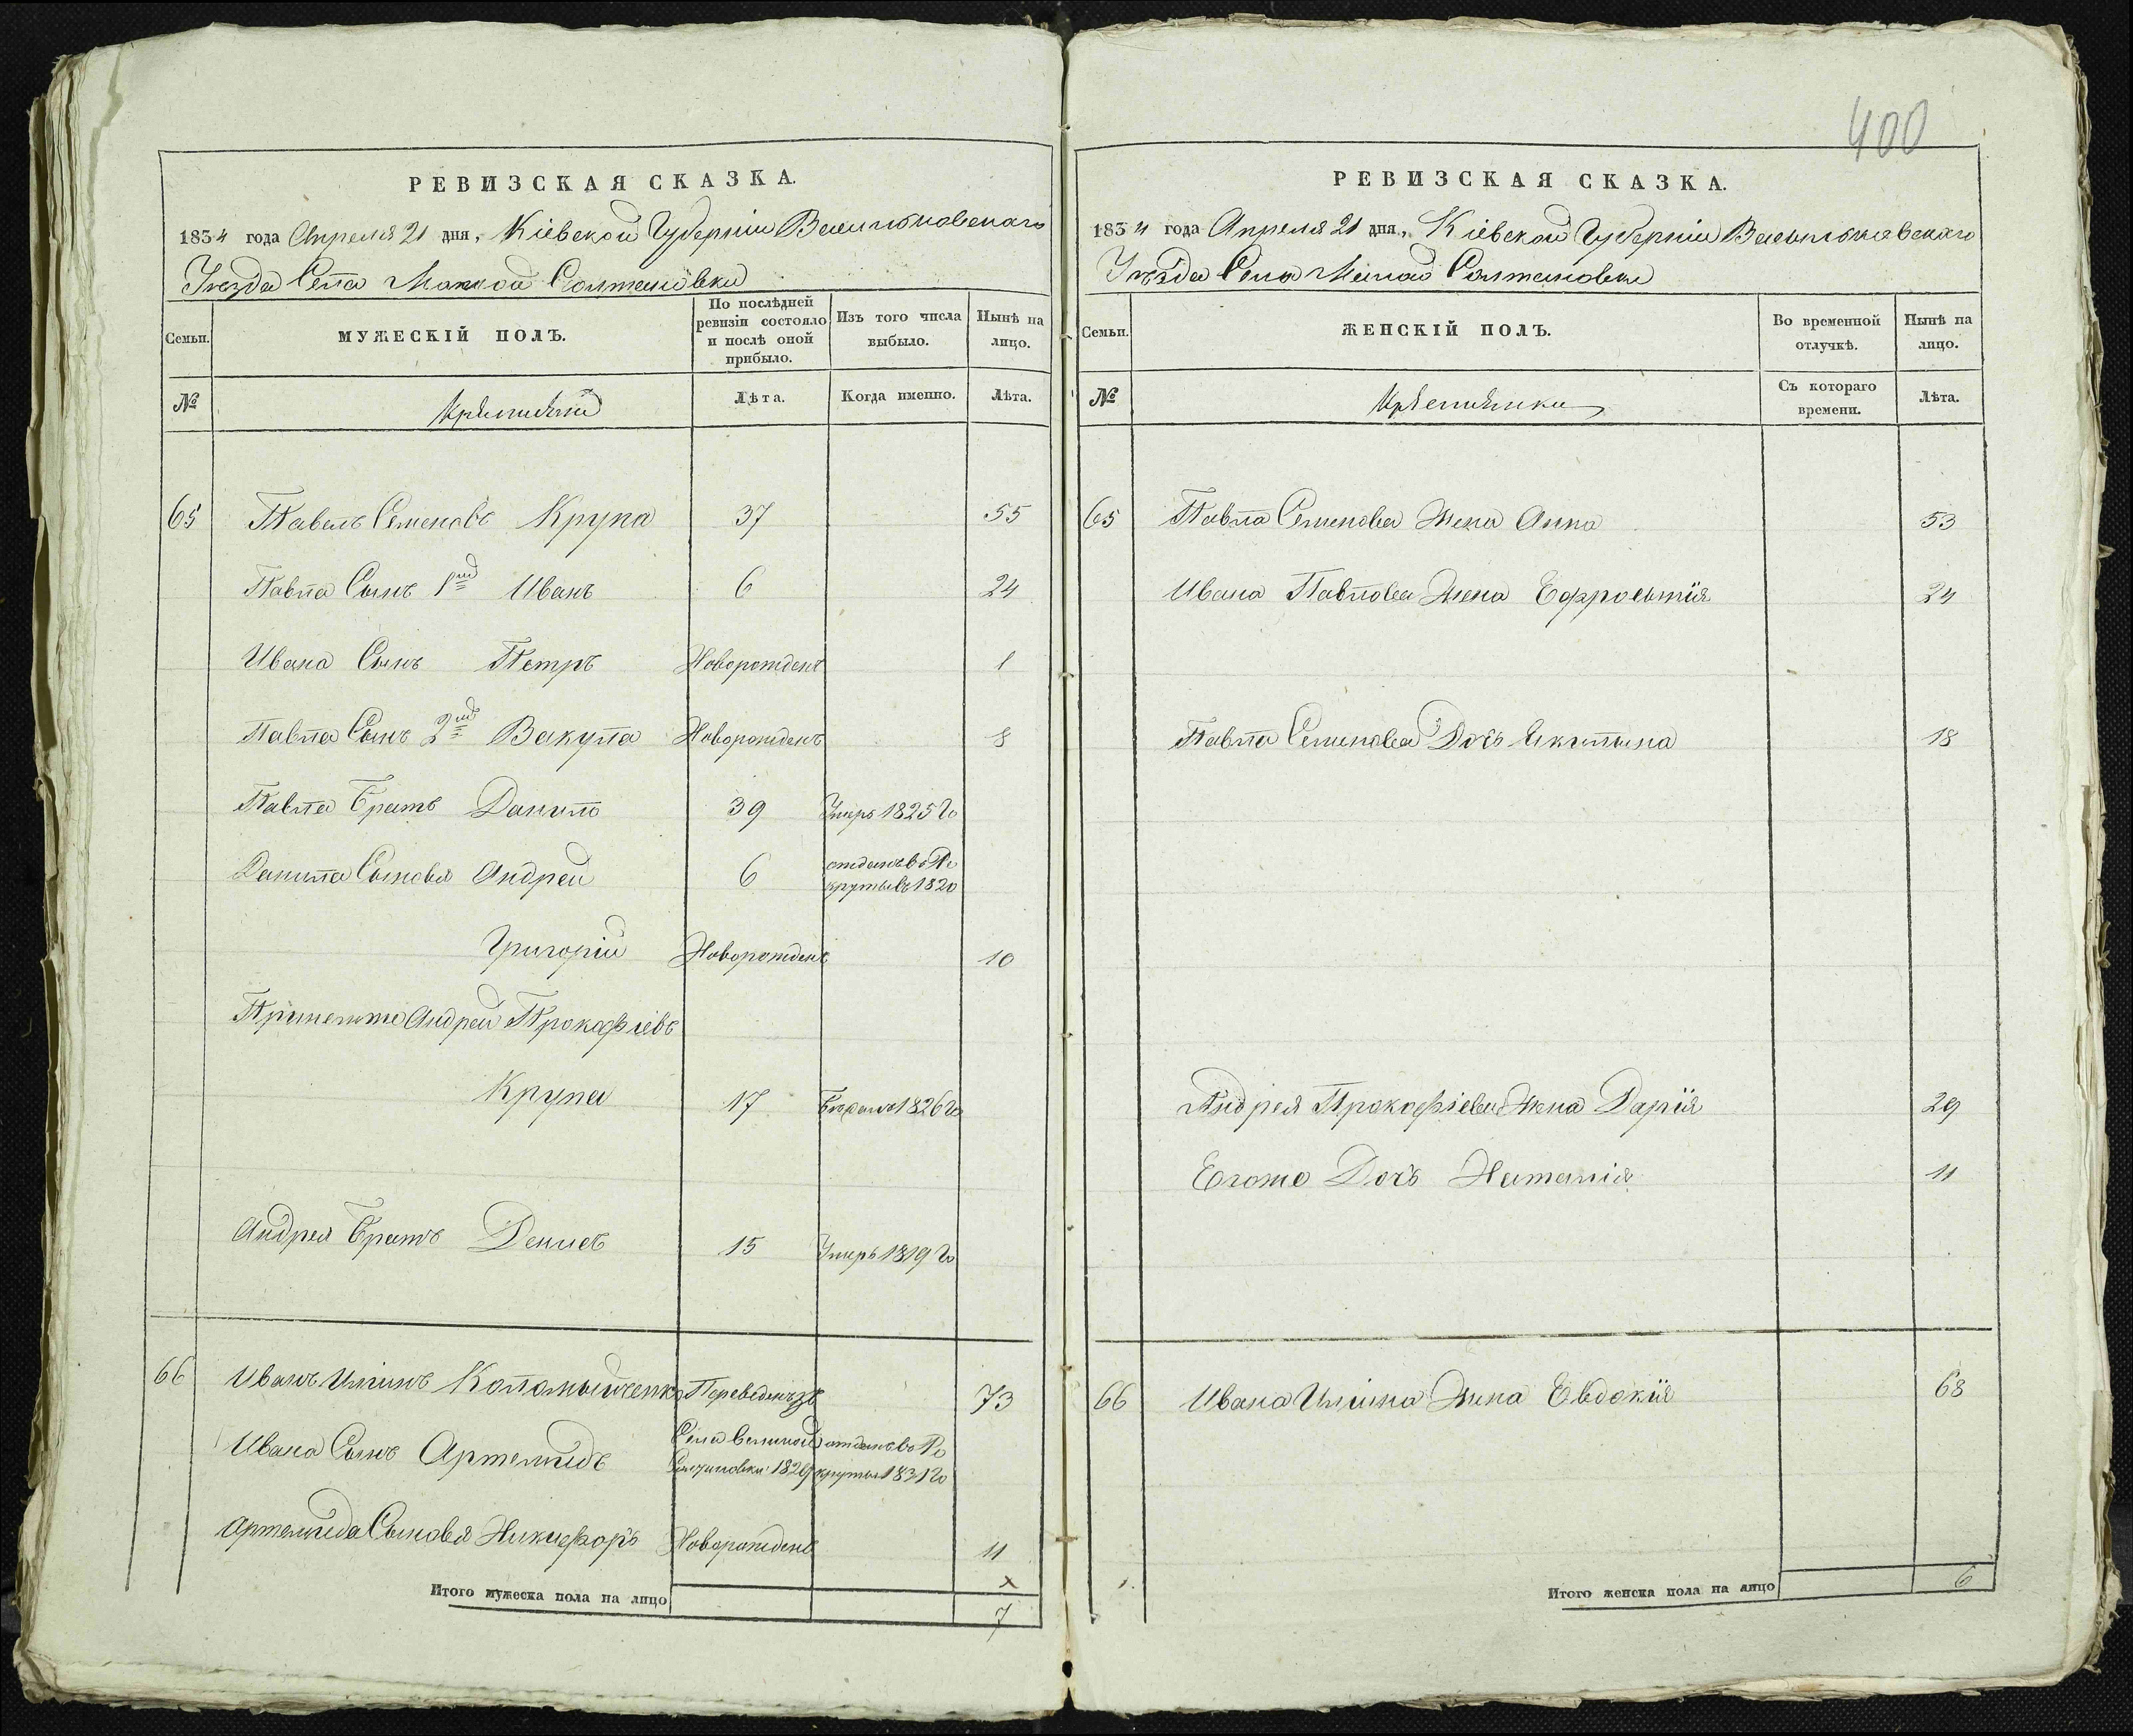 400
РЕВИЗСКАЯ СКАЗКА.
1834 года Апреля 21 дня, Кіевской Губерніи Васильковскаго
Уезда Села Малой Солтановки
Семьи.
МУЖЕСКІЙ ПОЛЪ.
По послѣдней ревизіи состояло и послѣ оной прибыло.
Изъ того числа выбыло.
Нынѣ на лицо.
№
Лѣта.
Когда именно.
Лѣта.
65 Павелъ Семеновъ Крупа 37 55
Павла Сынъ 1ый Иванъ 6 24
Ивана Сынъ Петръ Новорожденъ 1
Павла Сынъ 2ий Вакула Новорожденъ 8
Павла Братъ Данило 39 Умеръ 1825 го
Данила Сыновья Андрей 6 отданъ въ Ре
круты въ 1820
Григорій Новорожденъ 10
Андрей Прокофіевъ
Крупа 17 1826 го
Андрея Братъ Денисъ 15 Умеръ 1819 го
66 Иванъ Ильинъ Коломыйченко Переведенъ 73
Села Великой
1829
Ивана Сынъ Артемидъ отданъ въ Ре
круты 1831 го
Артемида Сыновья Никифоръ Новорожденъ 11
Итого мужеска пола на лицо 7
РЕВИЗСКАЯ СКАЗКА.
1834 года Апреля 21 дня, Кіевской Губерніи Васильковскаго
Уѣзда Села Малой Солтановки
Семьи.
ЖЕНСКІЙ ПОЛЪ.
Во временной отлучкѣ.
Нынѣ на лицо.
№
Съ котораго времени.
Лѣта.
65 Павла Семенова Жена Анна 53
Ивана Павлова Жена Ефросинія 24
Павла Семенова Дочь Акилина 18
Андрея Прокофіева Жена Дарія 29
Егоже Дочь Наталія 11
66 Ивана Ильина Жена Евдокія 68
Итого женска пола на лицо 6